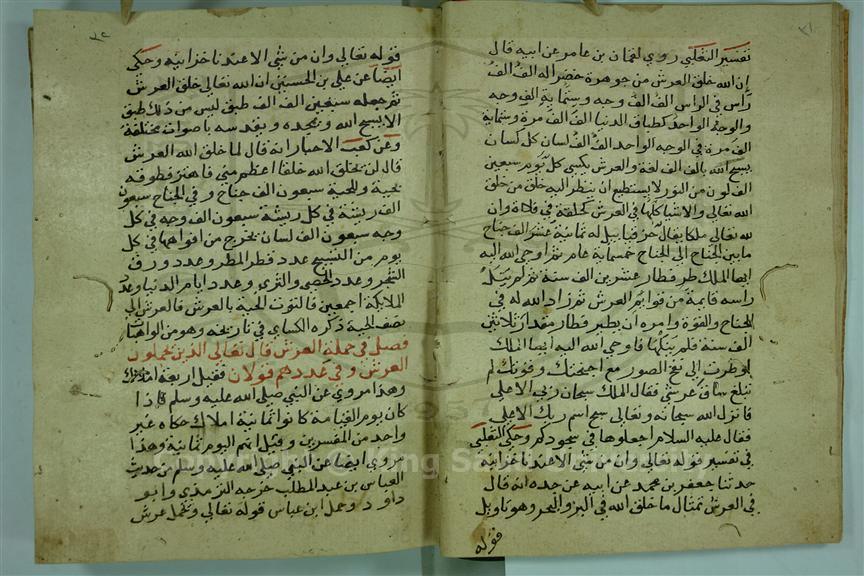 ٣١
تفسير الثعلبي روي لقمان بن عامر عن ابيه قال
ان الله خلق العرش من جوهرة خضرا له الف الف
راس في الراس الف الف وجه وستماية الف وجه
والوجه الواحد كطباق الدنيا الف الف مرة وستماية
الف مرة في الوجه الواحد الف الف لسان كل لسان
يسبح الله بالف الف لغة والعرش يكسي كل يوم سبعين
الف لون من النور لا يستطيع ان ينظر اليه خلق من خلق
الله تعالي والاشيا كلها في العرش كحلقة في فلاة وان
لله تعالي ملكا يقال حزقيابيل له ثمانية عشر الف جناح
ما بين الجناح الي الجناح خمسماية عام ثم اوحي الله اليه
ايها الملك طر فطار عشرين الف سنة ثم لم ينل
راسه قايمة من قوايم العرش ثم زاد الله له في
الجناح والقوة وامره ان يطير فطار مقدار ثلاثين
الف سنة فلم ينلها فاوحي الله اليه ايها الملك
لو طرت الي نفخ الصور مع اجنحتك وقوتك لم
تبلغ ساق عرشي فقال الملك سبحان ربي الاعلي
فانزل الله سبحانه وتعالي سبح اسم ربك الاعلي
فقال عليه السلام اجعلوها في سجودكم وحكي الثعلبي
في تفسير قوله تعالي وان من شي الا عندنا خزاينه
حدثنا جعفر بن محمد عن ابيه عن جده انه قال
في العرش تمثال ما خلق الله في البر والبحر وهو تاويل
قوله
٣٢
قوله تعالي وان من شي الا عندنا خزاينه وحكي
ايضا عن علي بن الحسين ان الله تعالي خلق العرش
ثم جعله سبعين الف الف طبق ليس من ذلك طبق
الا يسبح الله ويحمده ويقدسه باصوات مختلفة
وعن كعب الاحبار انه قال لما خلق الله العرش
قال لن يخلق الله خلقا اعظم مني فاهتز فطوقه
بحية وللحية سبعون الف جناح وفي الجناح سبعون
الف ريشة في كل ريشة سبعون الف وجه في كل
وجه سبعون الف لسان يخرج من افواهها في كل
يوم من التسبيح عدد قطر المطر وعدد ورق
الشجر وعدد الحصي والثري وعدد ايام الدنيا وعدد
الملايكة اجمعين فالتوت الحية بالعرش فالعرش الي
نصف الحية ذكره الكساي في تاريخه وهو من الواهيات
فصل في حملة العرش قال تعالي الذين يحملون
العرش وفي عددهم قولان فقيل اربعة املاك
وهذا مروي عن النبي صلي الله عليه وسلم فاذا
كان يوم القيامة كانوا ثمانية املاك حكاه غير
واحد من المفسرين وقيل انهم اليوم ثمانية وهذا
مروي ايضا عن النبي صلي الله عليه وسلم من حديث
العباس بن عبد المطلب خرجه الترمذي وابو
داود وحمل ابن عباس قوله تعالي ويحمل عرش